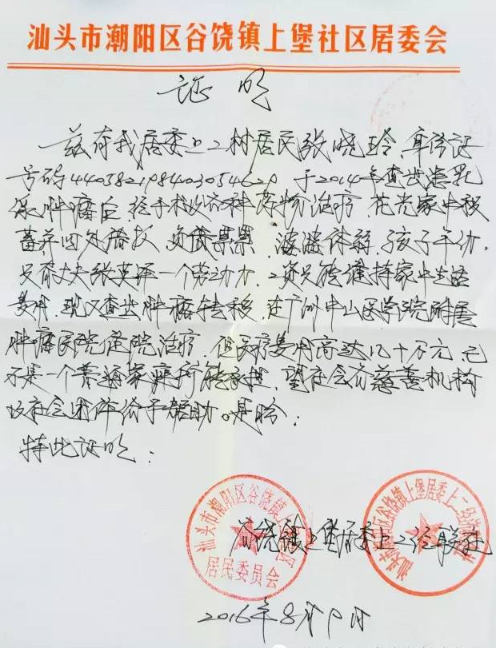 汕头市潮阳区谷饶镇上堡社区居委会
证明
兹有我居委上二树居民张晓玲 身份证
号码 于2014年查出患乳
腺肿瘤后 经手术及各种药物治疗 花光家中积
蓄并四处借款 负债累累 体弱 孩子年幼
只有丈夫张 一个劳动力 只能维持家中生活
费用 现又查出肿瘤转移 在广州中山医学院附属
肿瘤医院住院治疗 但医疗费用高达几十万元 已
不是一个普通家庭所能承担 望社会有慈善机构
社会团体给予帮助 是盼
特此证明
谷饶镇上堡居委上二经联社
汕头市潮阳区谷饶镇 社区
居民委员会
谷饶镇上堡居委上二经联社
2016年8月 日